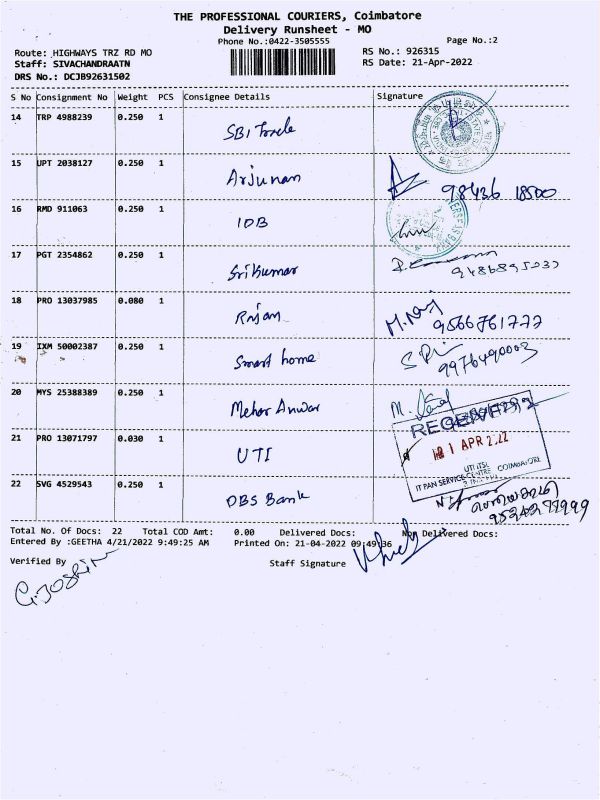 THE PROFESSIONAL COURIERS, Coimbatore
Delivery Runsheet - MO
Phone No.:0422-3505555
Page No.:2
Route: HIGHWAYS TRZ RD MO
RS No.: 926315
Staff: SIVACHANDRAATN
RS Date: 21-Apr-2022
DRS No.: DCJB92631502
S No Consignment No Weight PCS Consignee Details Signature
14 TRP 4988239 0.250 1 SBI Trade
15 UPT 2038127 0.250 1 Arjunan 98436 18500
16 RMD 911063 0.250 1 IOB
17 PGT 2354862 0.250 1 Srikumar
18 PRO 13037985 0.080 1 Rajan 9566761777
19 IXM 50002387 0.250 1 Smart home 9976490003
20 MYS 25388389 0.250 1 Mehar Anwar
RECEIVED
21 PRO 13071797 0.030 1 UTI
21 APR 2022
UTI ITSL
IT PAN SERVICE CENTRE COIMBATORE
22 SVG 4529543 0.250 1 DBS Bank
Total No. Of Docs: 22 Total COD Amt: 0.00 Delivered Docs: Non Delivered Docs:
Entered By :GEETHA 4/21/2022 9:49:25 AM Printed On: 21-04-2022 09:49:36
Verified By
Staff Signature